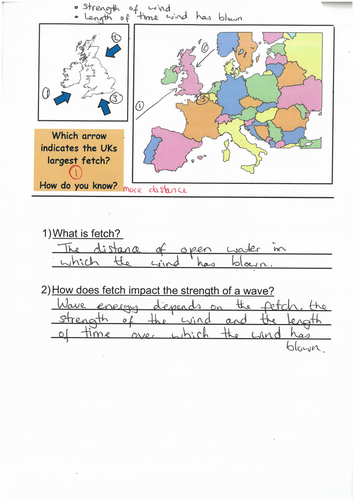 • strength of wind
• Length of time wind has blown
②
①
③
②
①
③
Which arrow
indicates the UKs
largest fetch?
①
How do you know? more distance
1) What is fetch?
The distance of open water in
which the wind has blown.
2) How does fetch impact the strength of a wave?
Wave energy depends on the fetch, the
strength of the wind and the length
of time over which the wind has
blown.